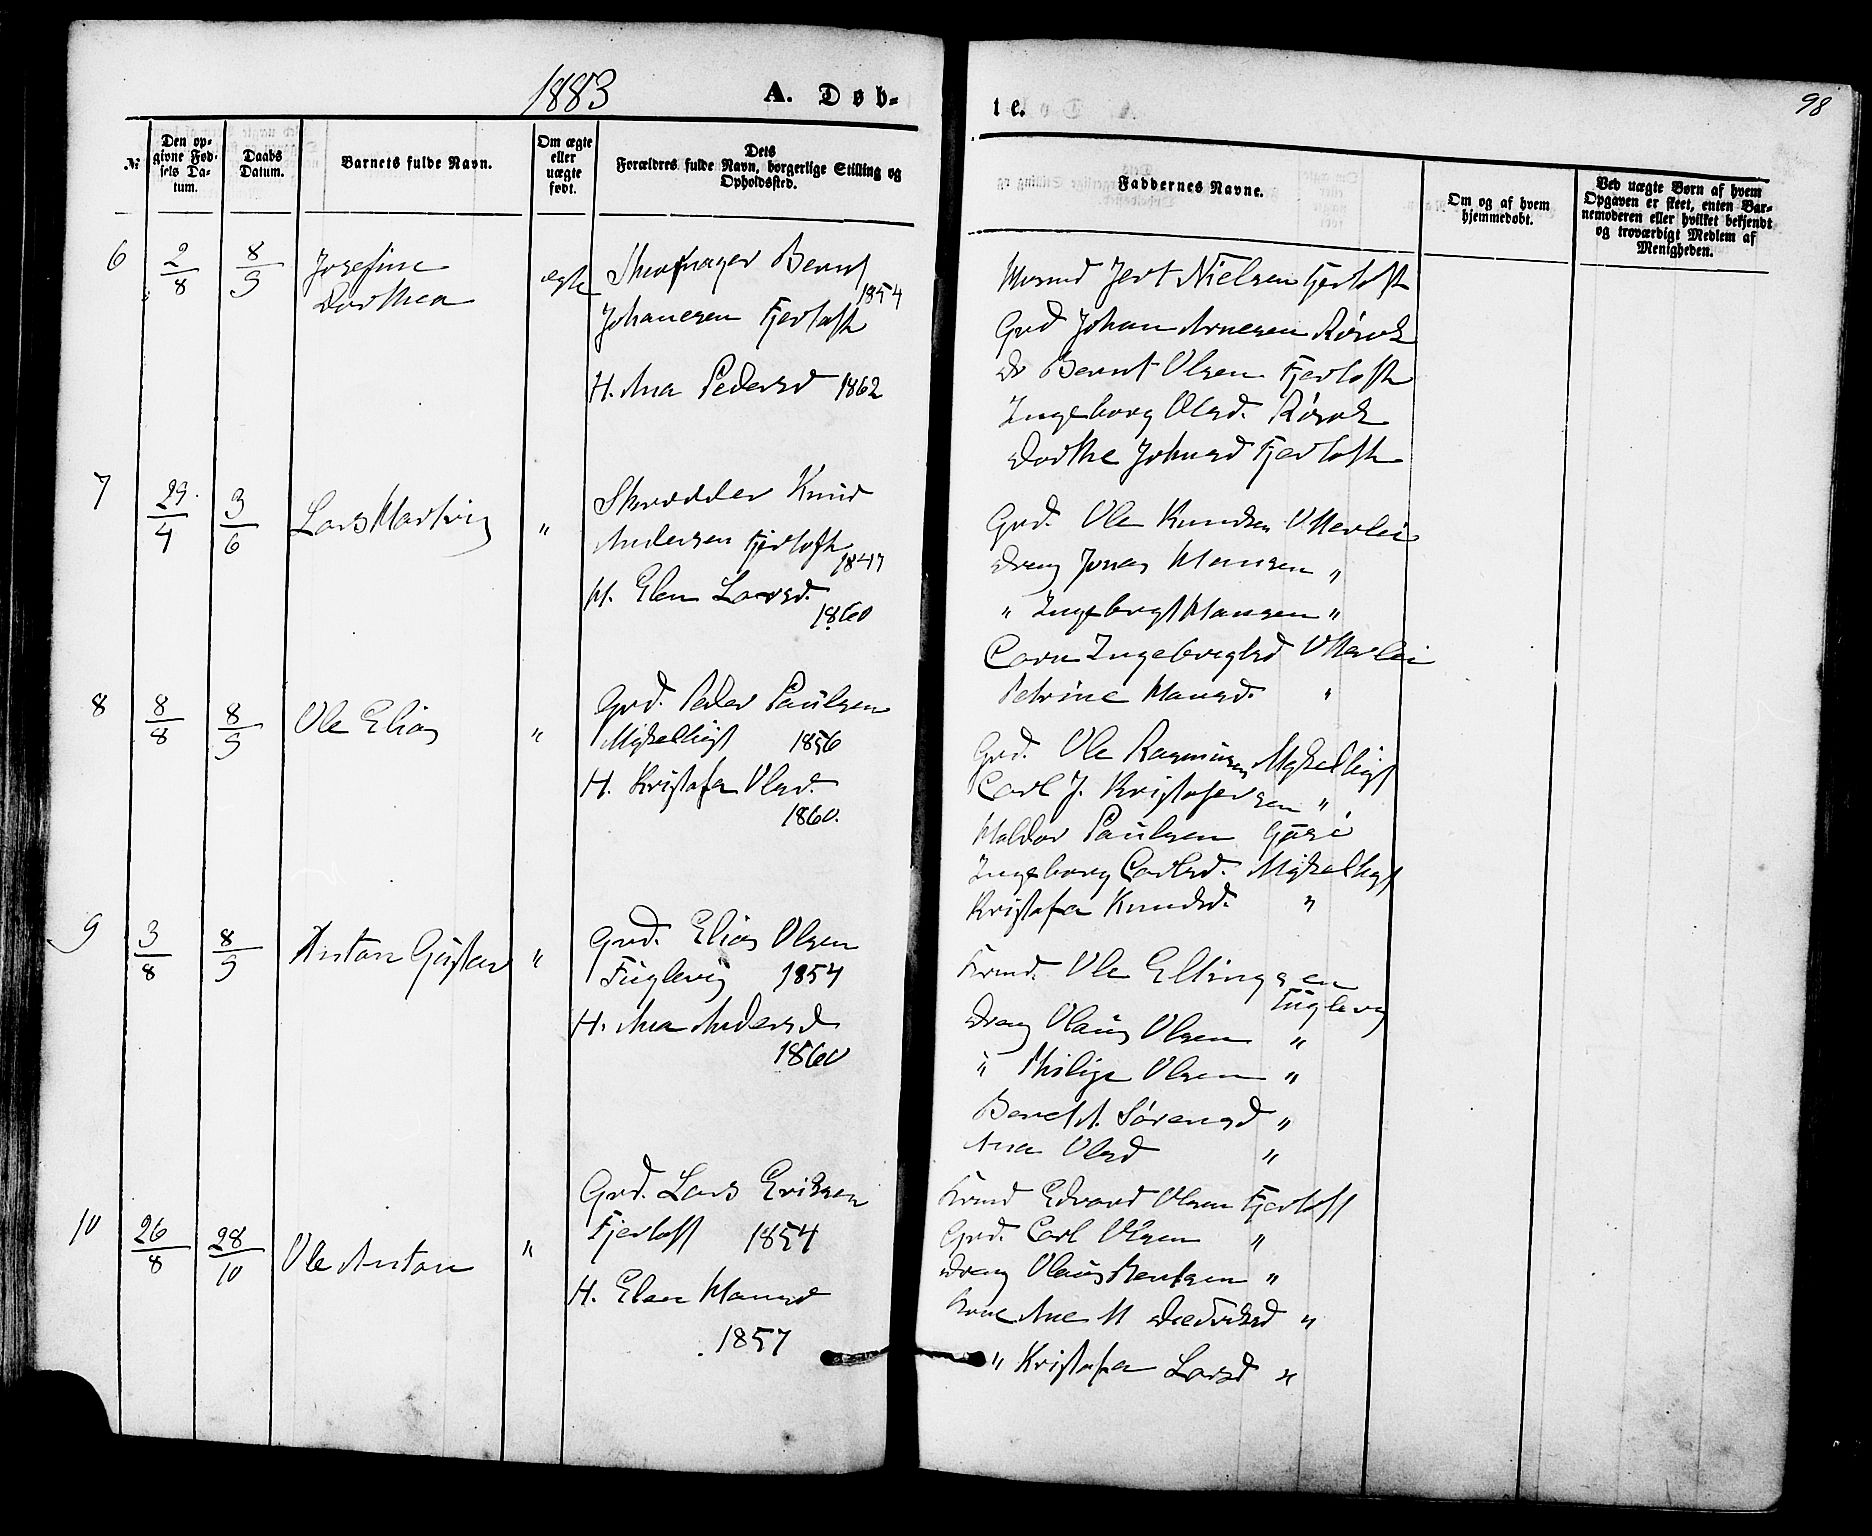 1883
A. Døb-
te.
98
№
Den op-
givne Fød-
sels Da-
tum.
Daabs
Datum.
Barnets fulde Navn.
Om ægte
eller
uægte
født.
Dets
Forældres fulde Navn, borgerlige Stilling og
Opholdssted.
Faddernes Navne.
Om og af hvem
hjemmedøbt.
Ved uægte Børn af hvem
Opgaven er skeet, enten Bar-
nemoderen eller hvilket bekjendt
og troværdigt Medlem af
Menigheden.
6
2/8
8/9
Josefine
Dorthea
ægte
Skomager Bernt
1854
Johanesen Fjertoft
H. Ana Pedersd 1862
Nielsen Fjertoft
Grd Johan Arnesen Rørvk
do Bernt Olsen Fjertoft
Ingeborg Olsd. Rørvk
Dorthe Johnsd Fjertoft
7
29/4
3/6
Lars Martin
"
Skrædder Knud
Andersen Fjertoft
1847
H. Elen Larsd.
1860
Grd. Ole Knudsen Utterlei
Dreng Jonas Hansen "
" Ingebrigt Hansen "
Ingebrigtsd Utterlei
Petrine Hansd. "
8
8/8
8/9
Ole Elias
"
Grd. Peder Paulsen
Mykelbust 1856
H. Kristofa Olsd.
1860.
Grd. Ole Rasmusen Mykelbust
Carl J. Kristofersen "
Haldor Paulsen
Ingeborg Carlsd. Mykelbust
Kristofa Knudsd. "
9
3/8
8/9
Anton Gustav
"
Grd. Elias Olsen
Fuglevig 1854
H. Ana Andersd
1860
Ole Ellingsen
Fuglevig
Dreng Olaus Olsen "
" Philip Olsen "
Sørensd "
Ana Olsd "
10
26/8
28/10
Ole Anton
"
Grd. Lars Eriksen
Fjertoft 1854
H. Elen Hansd
1857
Edvard Olsen Fjertoft
Grd. Carl Olsen "
Dreng Olaus Bentsen "
Kone Ane M Diedriksd "
" Kristofa Larsd "